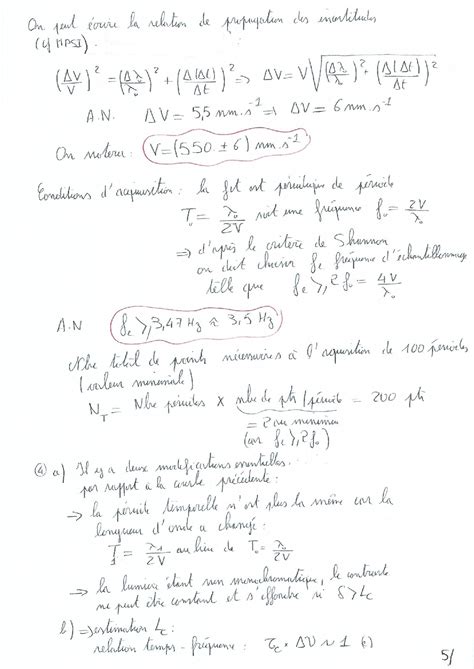 On peut écrire la relation de propagation des incertitudes
(cf MPSI).
(ΔV/V)² = (Δλ/λ₀)² + (Δ(Δt)/Δt)² => ΔV = V√((Δλ/λ₀)² + (Δ(Δt)/Δt)²)
A.N. ΔV = 5,5 nm.s⁻¹ => ΔV = 6 nm.s⁻¹
On notera : V = (550 ± 6) nm.s⁻¹
Conditions d'acquisition : la fct est périodique de période
T₀ = λ₀/2V soit une fréquence f₀ = 2V/λ₀
=> d'après le critère de Shannon
on doit choisir fe fréquence d'échantillonnage
telle que fe ⩾ 2f₀ = 4V/λ₀
A.N fe ⩾ 3,47 Hz ≈ 3,5 Hz
Nbre total de points nécessaires à l'aquisition de 100 périodes
(valeur minimale)
N_T = Nbre périodes × nbre de pts / période = 200 pts
= 2 au minimum
(car fe ⩾ 2f₀)
④ a) Il y a deux modifications essentielles
par rapport à la courbe précédente :
=> la période temporelle n'est plus la même car la
longueur d'onde a changé :
T₁ = λ₁/2V au lieu de T₀ = λ₀/2V
=> la lumière étant non monochromatique, le contraste
ne peut être constant et s'effondre si δ > Lc
b) => estimation Lc :
relation temps-fréquence : τc × Δν ~ 1
5/